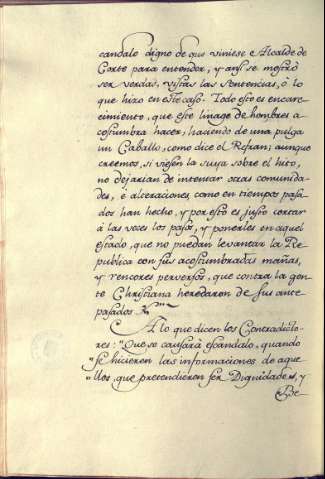 candalo digno de que viniese e Alcalde de
Corte para entender, y ansi se mostró
ser verdad, vistas las Sentencias, ó lo
que hizo en este caso. Todo esto es encare-
cimiento, que este linage de hombres a-
costumbra hacer, haciendo de una pulga
un Caballo, como dice el Refran; aunque
creemos, si viesen la suya sobre el hito,
no dejarian de intentar otras comunida-
des, é alteraciones como en tiempos pasa-
dos han hecho, y por esto es justo cortar
á las veces los pasos, y ponerles en aquel
estado, que no puedan levantar la Re-
publica con sus acostumbradas mañas,
y rencores perversos, que contra la gen-
te Christiana heredaron de sus ante
pasados
A lo que dicen los Contradicto-
res: "Que se causará escandalo, quando
"se hicieren las informaciones de aque-
"llos, que pretendieren ser Dignidades, y
De